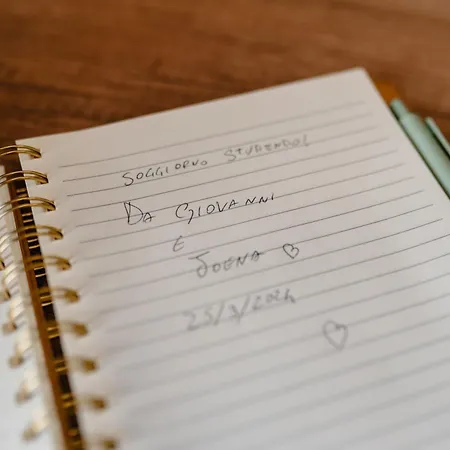 SOGGIORNO STUPENDO!
DA GIOVANNI
E
JOENA ♡
25/3/2024
♡